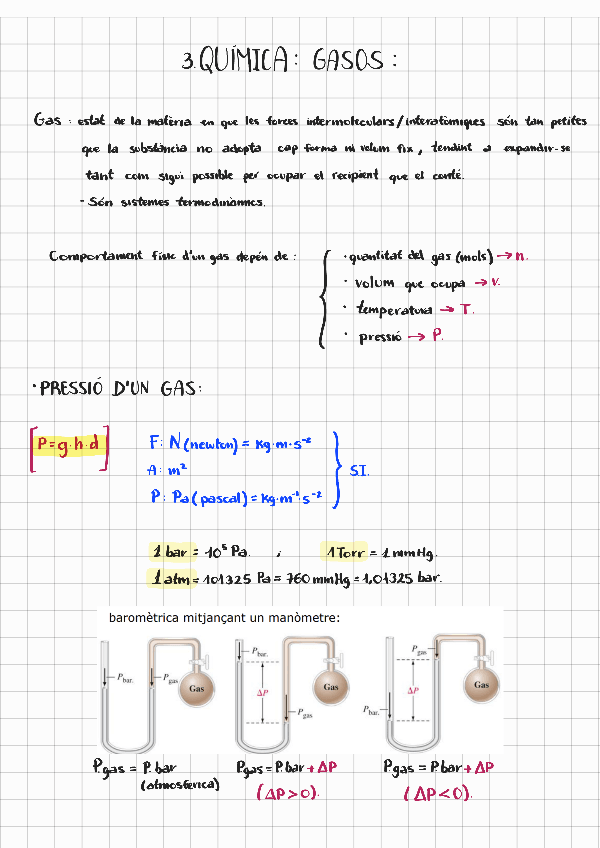 3. QUÍMICA: GASOS:
Gas: estat de la matèria en que les forces intermoleculars/interatòmiques són tan petites
que la substància no adopta cap forma ni volum fix, tendint a expandir-se
tant com sigui possible per ocupar el recipient que el conté.
- Són sistemes termodinàmics.
Comportament físic d'un gas depèn de:
· quantitat del gas (mols) → n.
· volum que ocupa → V.
· temperatura → T.
· pressió → P.
· PRESSIÓ D'UN GAS:
[P=g·h·d]
F: N (newton) = kg·m·s⁻²
A: m²
P: Pa (pascal) = kg·m⁻¹·s⁻²
S.I.
1 bar = 10⁵ Pa. ; 1 Torr = 1 mmHg.
1 atm = 101325 Pa = 760 mmHg = 1,01325 bar.
baromètrica mitjançant un manòmetre:
P bar. P gas Gas
P bar. ΔP P gas Gas
P gas ΔP P bar. Gas
P.gas = P.bar (atmosfèrica)
P.gas = P.bar + ΔP (ΔP>0).
P.gas = P.bar + ΔP (ΔP<0).